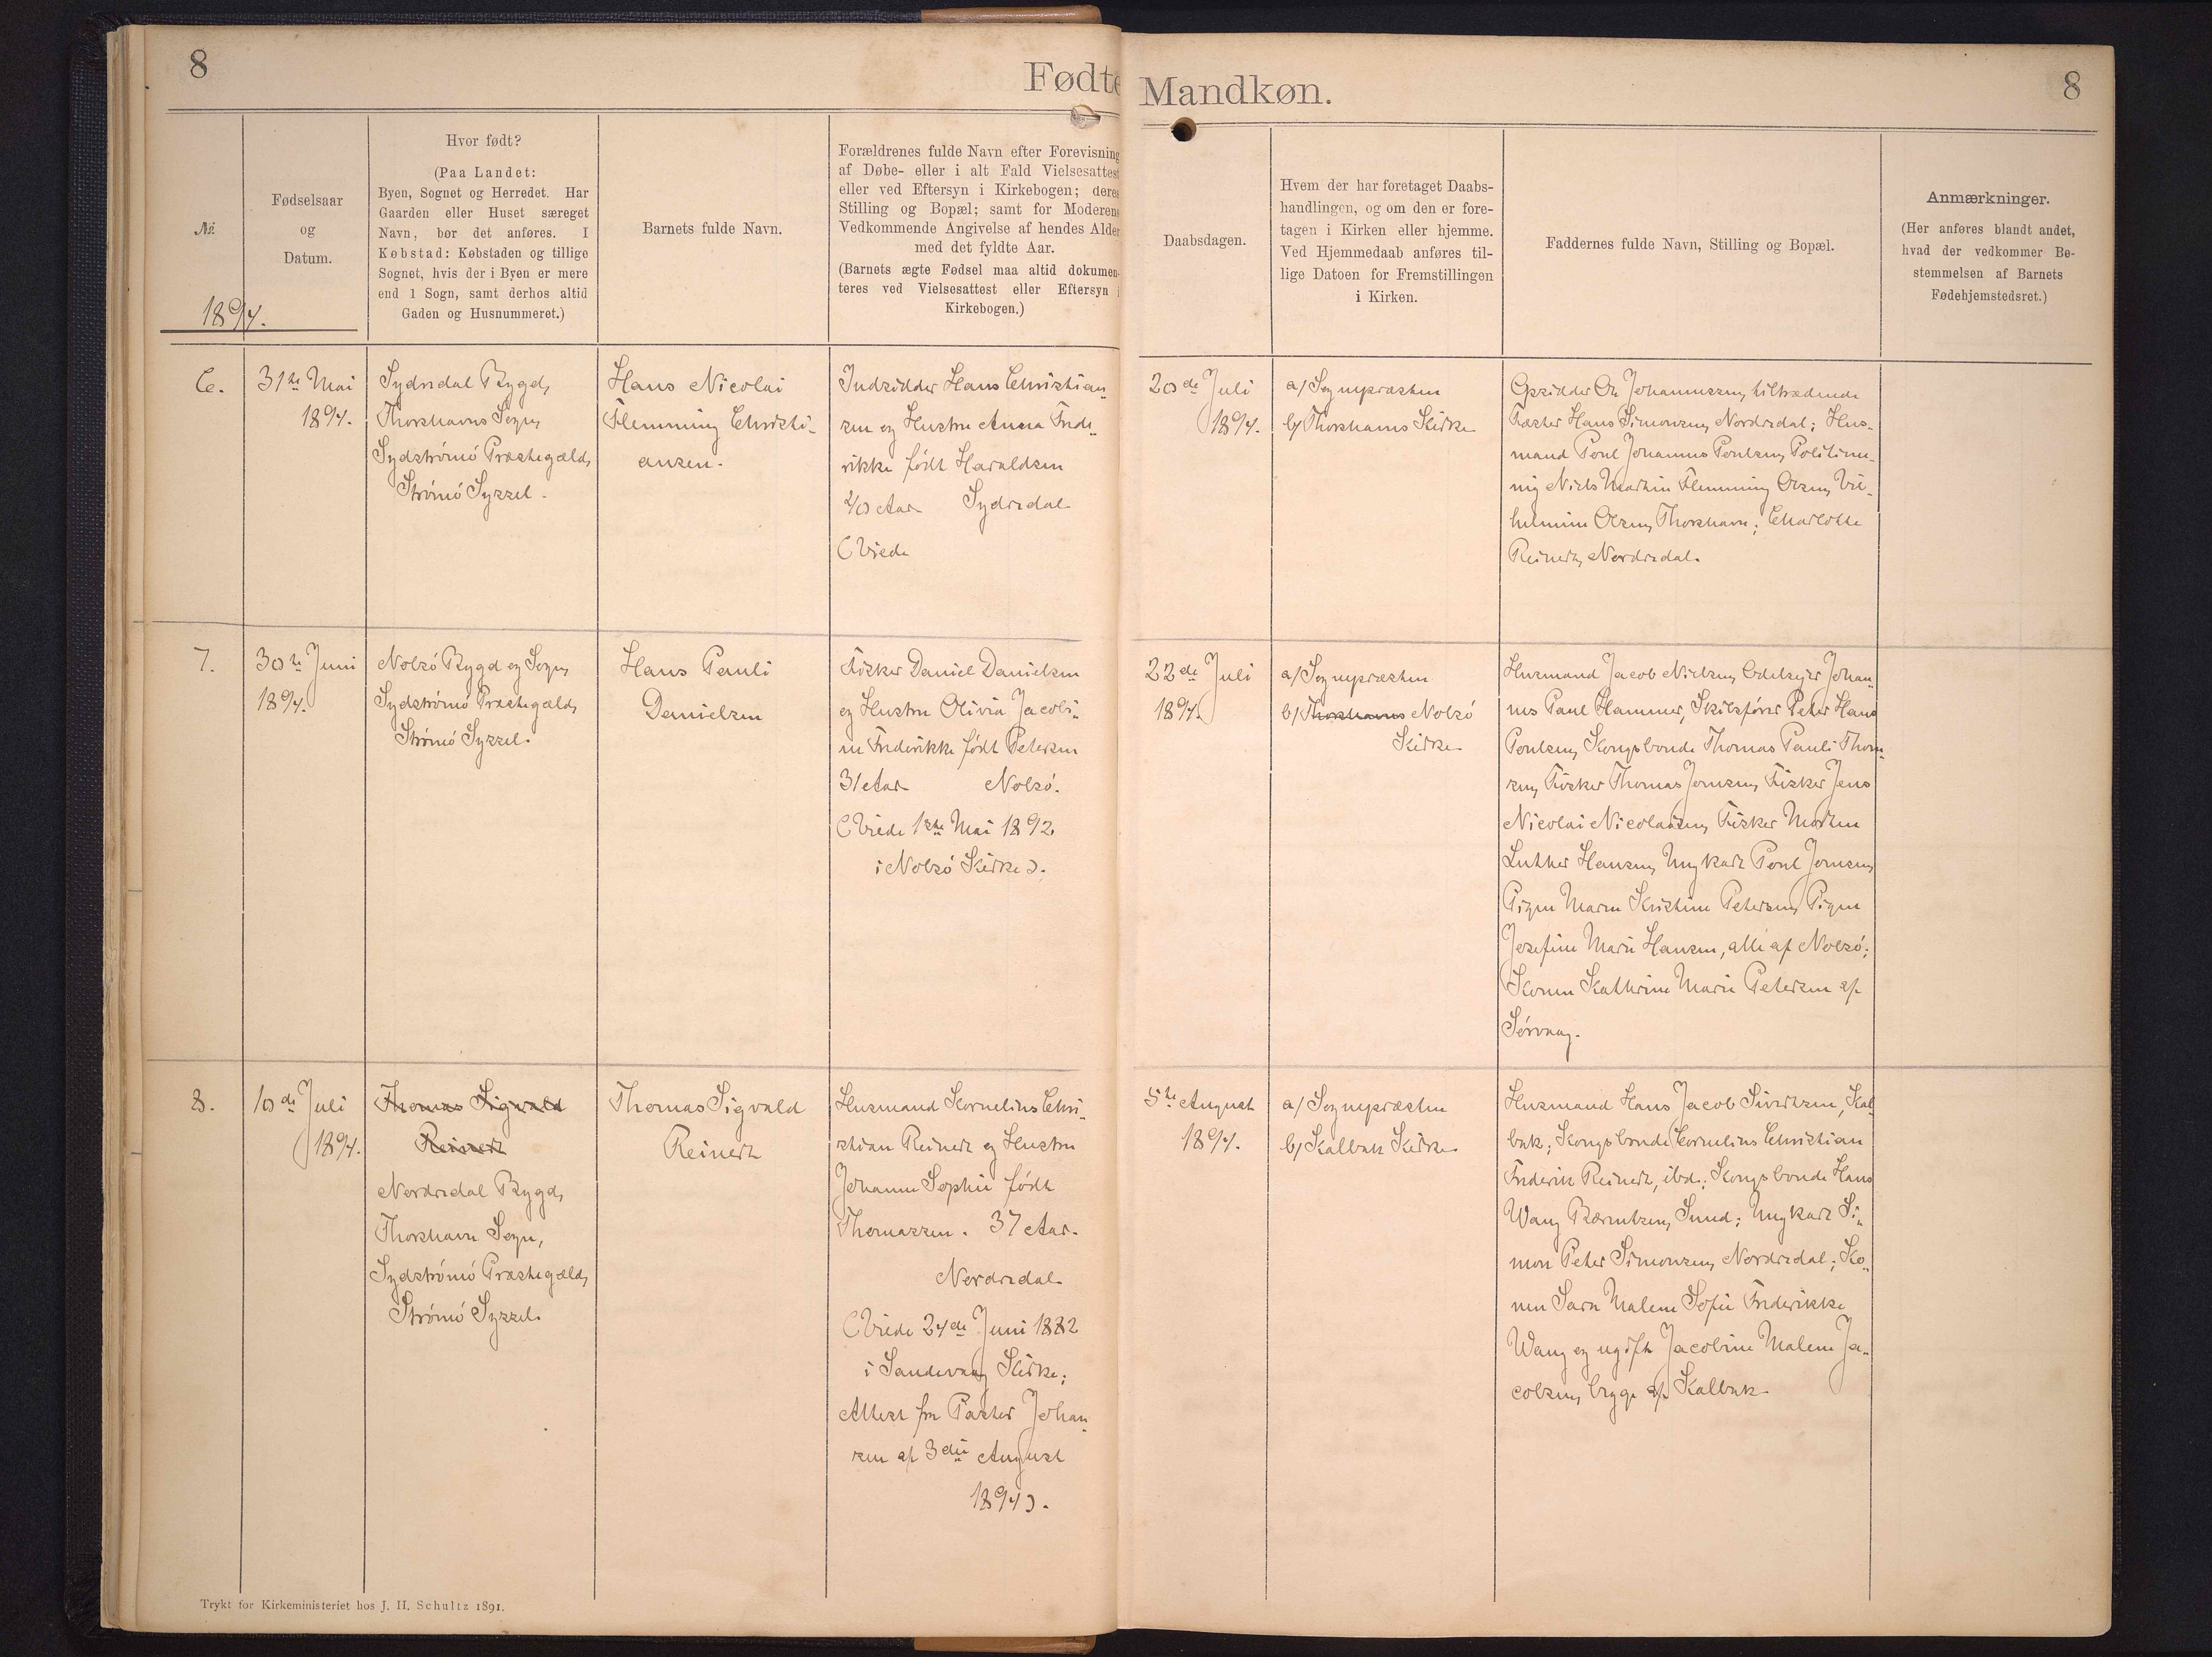 8
Fødte
Mandkøn.
8
№
1894.
Fødselsaar
og
Datum.
Hvor født?
(Paa Landet:
Byen, Sognet og Herredet. Har
Gaarden eller Huset særeget
Navn, bør det anføres. I
Købstad: Købstaden og tillige
Sognet, hvis der i Byen er mere
end 1 Sogn, samt derhos altid
Gaden og Husnummeret.)
Barnets fulde Navn.
Forældrenes fulde Navn efter Forevisning
af Døbe- eller i alt Fald Vielsesattest
eller ved Eftersyn i Kirkebogen; deres
Stilling og Bopæl; samt for Moderens
Vedkommende Angivelse af hendes Alder
med det fyldte Aar.
(Barnets ægte Fødsel maa altid dokumen-
teres ved Vielsesattest eller Eftersyn i
Kirkebogen.)
Daabsdagen.
Hvem der har foretaget Daabs-
handlingen, og om den er fore-
tagen i Kirken eller hjemme.
Ved Hjemmedaab anføres til-
lige Datoen for Fremstillingen
i Kirken.
Faddernes fulde Navn, Stilling og Bopæl.
Anmærkninger.
(Her anføres blandt andet,
hvad der vedkommer Be-
stemmelsen af Barnets
Fødehjemstedsret.)
6.
31te Mai
1894.
Sydredal Bygd,
Thorshavns Sogn,
Sydstrømø Præstegæld,
Strømø Syssel.
Hans Nicolai
Flemming Christi-
ansen.
Indsidder Hans Christian-
sen og Hustru Anna Frede-
rikke født Haraldsen
40 Aar Sydredal
(Viede
20de Juli
1894.
a/ Sognepræsten
b/ Thorshavns Kirke
Opsidder Ole Johannessen, tiltrædende
Fæster Hans Simonsen, Nordredal; Hus-
mand Poul Johannes Poulsen, Politien-
nig Niels Martin Flemming Olsen, Vil-
helmine Olsen, Thorshavn; Charlotte
Reinert, Nordredal.
7.
30te Juni
1894.
Nolsø Bygd og Sogn,
Sydstrømø Præstegæld,
Strømø Syssel.
Hans Pauli
Danielsen
Fisker Daniel Danielsen
og Hustru Olivia Jacobi-
ne Frederikke født Petersen
31 Aar Nolsø.
(Viede 1ste Mai 1892
i Nolsø Kirke).
22de Juli
1894.
a/ Sognepræsten
b/ Thorshavns Nolsø
Kirke
Husmand Jacob Nielsen, Odelsejer Johan-
nes Paul Hammer, Skibsfører Peter Hans
Poulsen, Kongsbonde Thomas Pauli Thom-
sen, Fisker Thomas Joensen, Fisker Jens
Nicolai Nicolaisen, Fisker Morten
Luther Hansen, Ungkarl Poul Joensen,
Pigen Maren Kristine Petersen, Pigen
Josefine Marie Hansen, alle af Nolsø;
Konen Kathrine Marie Petersen af
Sørvaag.
8.
10de Juli
1894.
Thomas Sigvald
Reinert
Nordredal Bygd,
Thorshavn Sogn,
Sydstrømø Præstegæld,
Strømø Syssel.
Thomas Sigvald
Reinert
Husmand Kornelius Chri-
stian Reinert og Hustru
Johanne Sophie født
Thomassen. 37 Aar.
Nordredal.
(Viede 24de Juni 1882
i Sandevaag Kirke;
Attest fra Pastor Johan-
sen af 3die August
1894).
5te August
1894.
a/ Sognepræsten
b/ Kalbak Kirke
Husmand Hans Jacob Sivertsen, Kal-
bak; Kongsbonde Cornelius Christian
Frederik Reinert, ibd.; Kongsbonde Hans
Wang Bærentsen, Sund; Ungkarl Si-
mon Peter Simonsen, Nordredal; Ko-
nen Sara Malene Sofie Frederikke
Wang og ugift Jacobine Malene Ja-
cobsen, begge af Kalbak.
Trykt for Kirkeministeriet hos J. H. Schultz 1891.